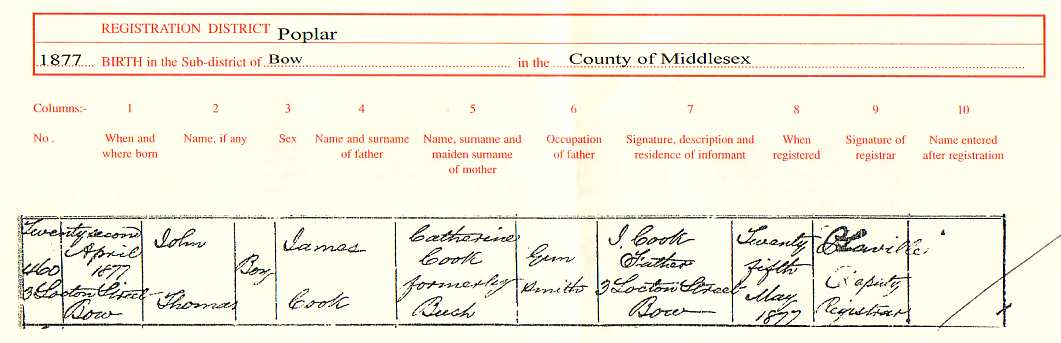 REGISTRATION DISTRICT Poplar
1877 BIRTH in the Sub-district of Bow in the County of Middlesex
Columns:- 1 2 3 4 5 6 7 8 9 10
No. When and where born Name, if any Sex Name and surname of father Name, surname and maiden surname of mother Occupation of father Signature, description and residence of informant When registered Signature of registrar Name entered after registration
460
Twenty second
April
1877
3 Locton Street
Bow
John
Thomas
Boy
James
Cook
Catherine
Cook
formerly
Gun
Smith
J. Cook
Father
3 Locton Street
Bow
Twenty
fifth
May
1877
Deputy
Registrar